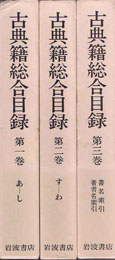 古典籍総合目録
第一巻
あ―し
岩波書店
古典籍総合目録
第二巻
す―わ
岩波書店
古典籍総合目録
第三巻
書名索引
著者名索引
岩波書店